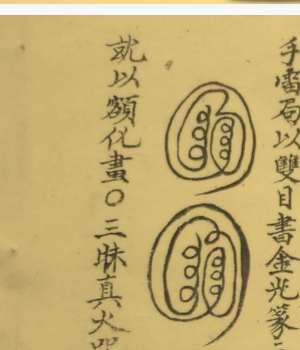 手雷局以雙目書金光篆
就以額化畫○三昧真火